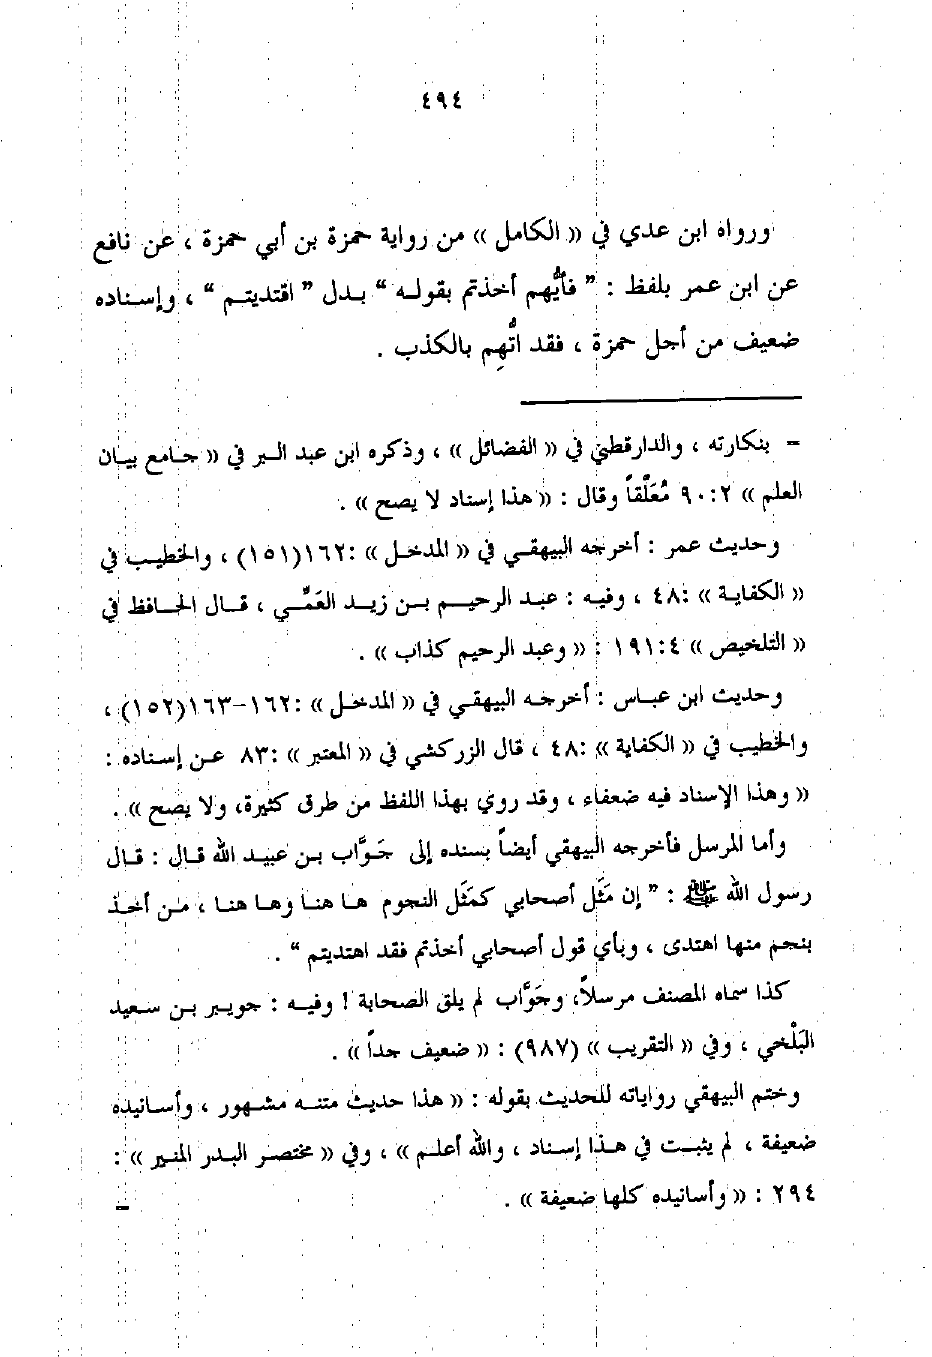 ٤٩٤
ورواه ابن عدي في (( الكامل )) من رواية حمزة بن أبي حمزة ، عن نافع
عن ابن عمر بلفظ : ” فأيُّهم أخذتم بقولـه “ بـدل ” اقتديتـم “ ، وإسـناده
ضعيف من أجل حمزة ، فقد اتُّهِم بالكذب .
= بنكارته ، والدارقطني في (( الفضائل )) ، وذكره ابن عبد الـبر في (( جـامع بيـان
العلم )) ٩٠:٢ مُعَلَّقاً وقال : (( هذا إسناد لا يصح )) .
وحديث عمر : أخرجه البيهقـي في (( المدخـل )) :١٦٢(١٥١) ، والخطيـب في
(( الكفايـة )) :٤٨ ، وفيـه : عبـد الرحيـم بـن زيـد العَمِّـي ، قـال الحـافظ في
(( التلخيص )) ١٩١:٤ : (( وعبد الرحيم كذاب )) .
وحديث ابن عبـاس : أخرجـه البيهقـي في (( المدخـل )) :١٦٢-١٦٣(١٥٢) ،
والخطيب في (( الكفاية )) :٤٨ ، قال الزركشي في (( المعتبر )) :٨٣ عـن إسـناده :
(( وهذا الإسناد فيه ضعفاء ، وقد روي بهذا اللفظ من طرق كثيرة، ولا يصح )) .
وأما المرسل فأخرجه البيهقي أيضاً بسنده إلى جَـوَّاب بـن عبيـد الله قـال : قـال
رسول الله ﷺ : ” إن مَثَل أصحابي كمَثَل النجوم هـا هنـا وهـا هنـا ، مـن أخـذ
بنجم منها اهتدى ، وبأي قول أصحابي أخذتم فقد اهتديتم “ .
كذا سماه المصنف مرسلاً، وجَوَّاب لم يلق الصحابة ! وفيـه : جويـبر بـن سـعيد
البَلْخي ، وفي (( التقريب )) (٩٨٧) : (( ضعيف جداً )) .
وختم البيهقي رواياته للحديث بقوله : (( هذا حديث متنـه مشـهور ، وأسـانيده
ضعيفة ، لم يثبـت في هـذا إسـناد ، والله أعلـم )) ، وفي (( مختصـر البـدر المنـير )) :
٢٩٤ : (( وأسانيده كلها ضعيفة )) . =